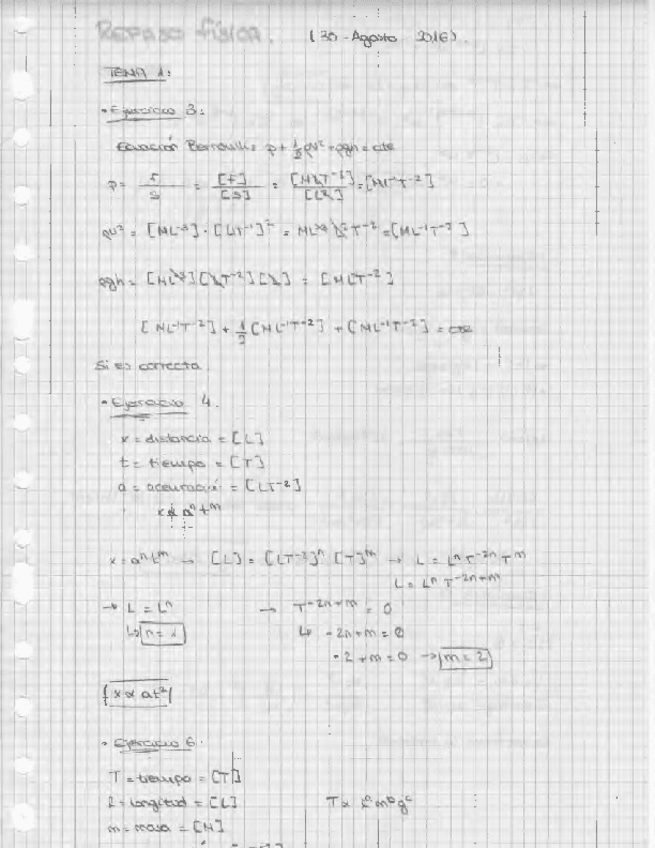 REPASO física. (30-Agosto 2016).
TEMA 1:
• Ejercicio 3:
Ecuación Bernoulli: p + ½ρv² + ρgh = cte
p = F/S = [F]/[S] = [MLT⁻²]/[L²] = [ML⁻¹T⁻²]
ρv² = [ML⁻³]·[LT⁻¹]² = ML⁻³L²T⁻² = [ML⁻¹T⁻²]
ρgh = [ML⁻³][LT⁻²][L] = [ML⁻¹T⁻²]
[ML⁻¹T⁻²] + ½[ML⁻¹T⁻²] + [ML⁻¹T⁻²] = cte
Si es correcta.
• Ejercicio 4.
x = distancia = [L]
t = tiempo = [T]
a = aceleración = [LT⁻²]
x α aⁿtᵐ
x = aⁿtᵐ → [L] = [LT⁻²]ⁿ [T]ᵐ → L = Lⁿ T⁻²ⁿ Tᵐ
L = Lⁿ T⁻²ⁿ⁺ᵐ
→ L = Lⁿ → T⁻²ⁿ⁺ᵐ = 0
↳ n = 1 ↳ -2n+m = 0
-2+m = 0 → m = 2
x α at²
• Ejercicio 6.
T = tiempo = [T]
l = longitud = [L] T α lᵃmᵇgᶜ
m = masa = [M]